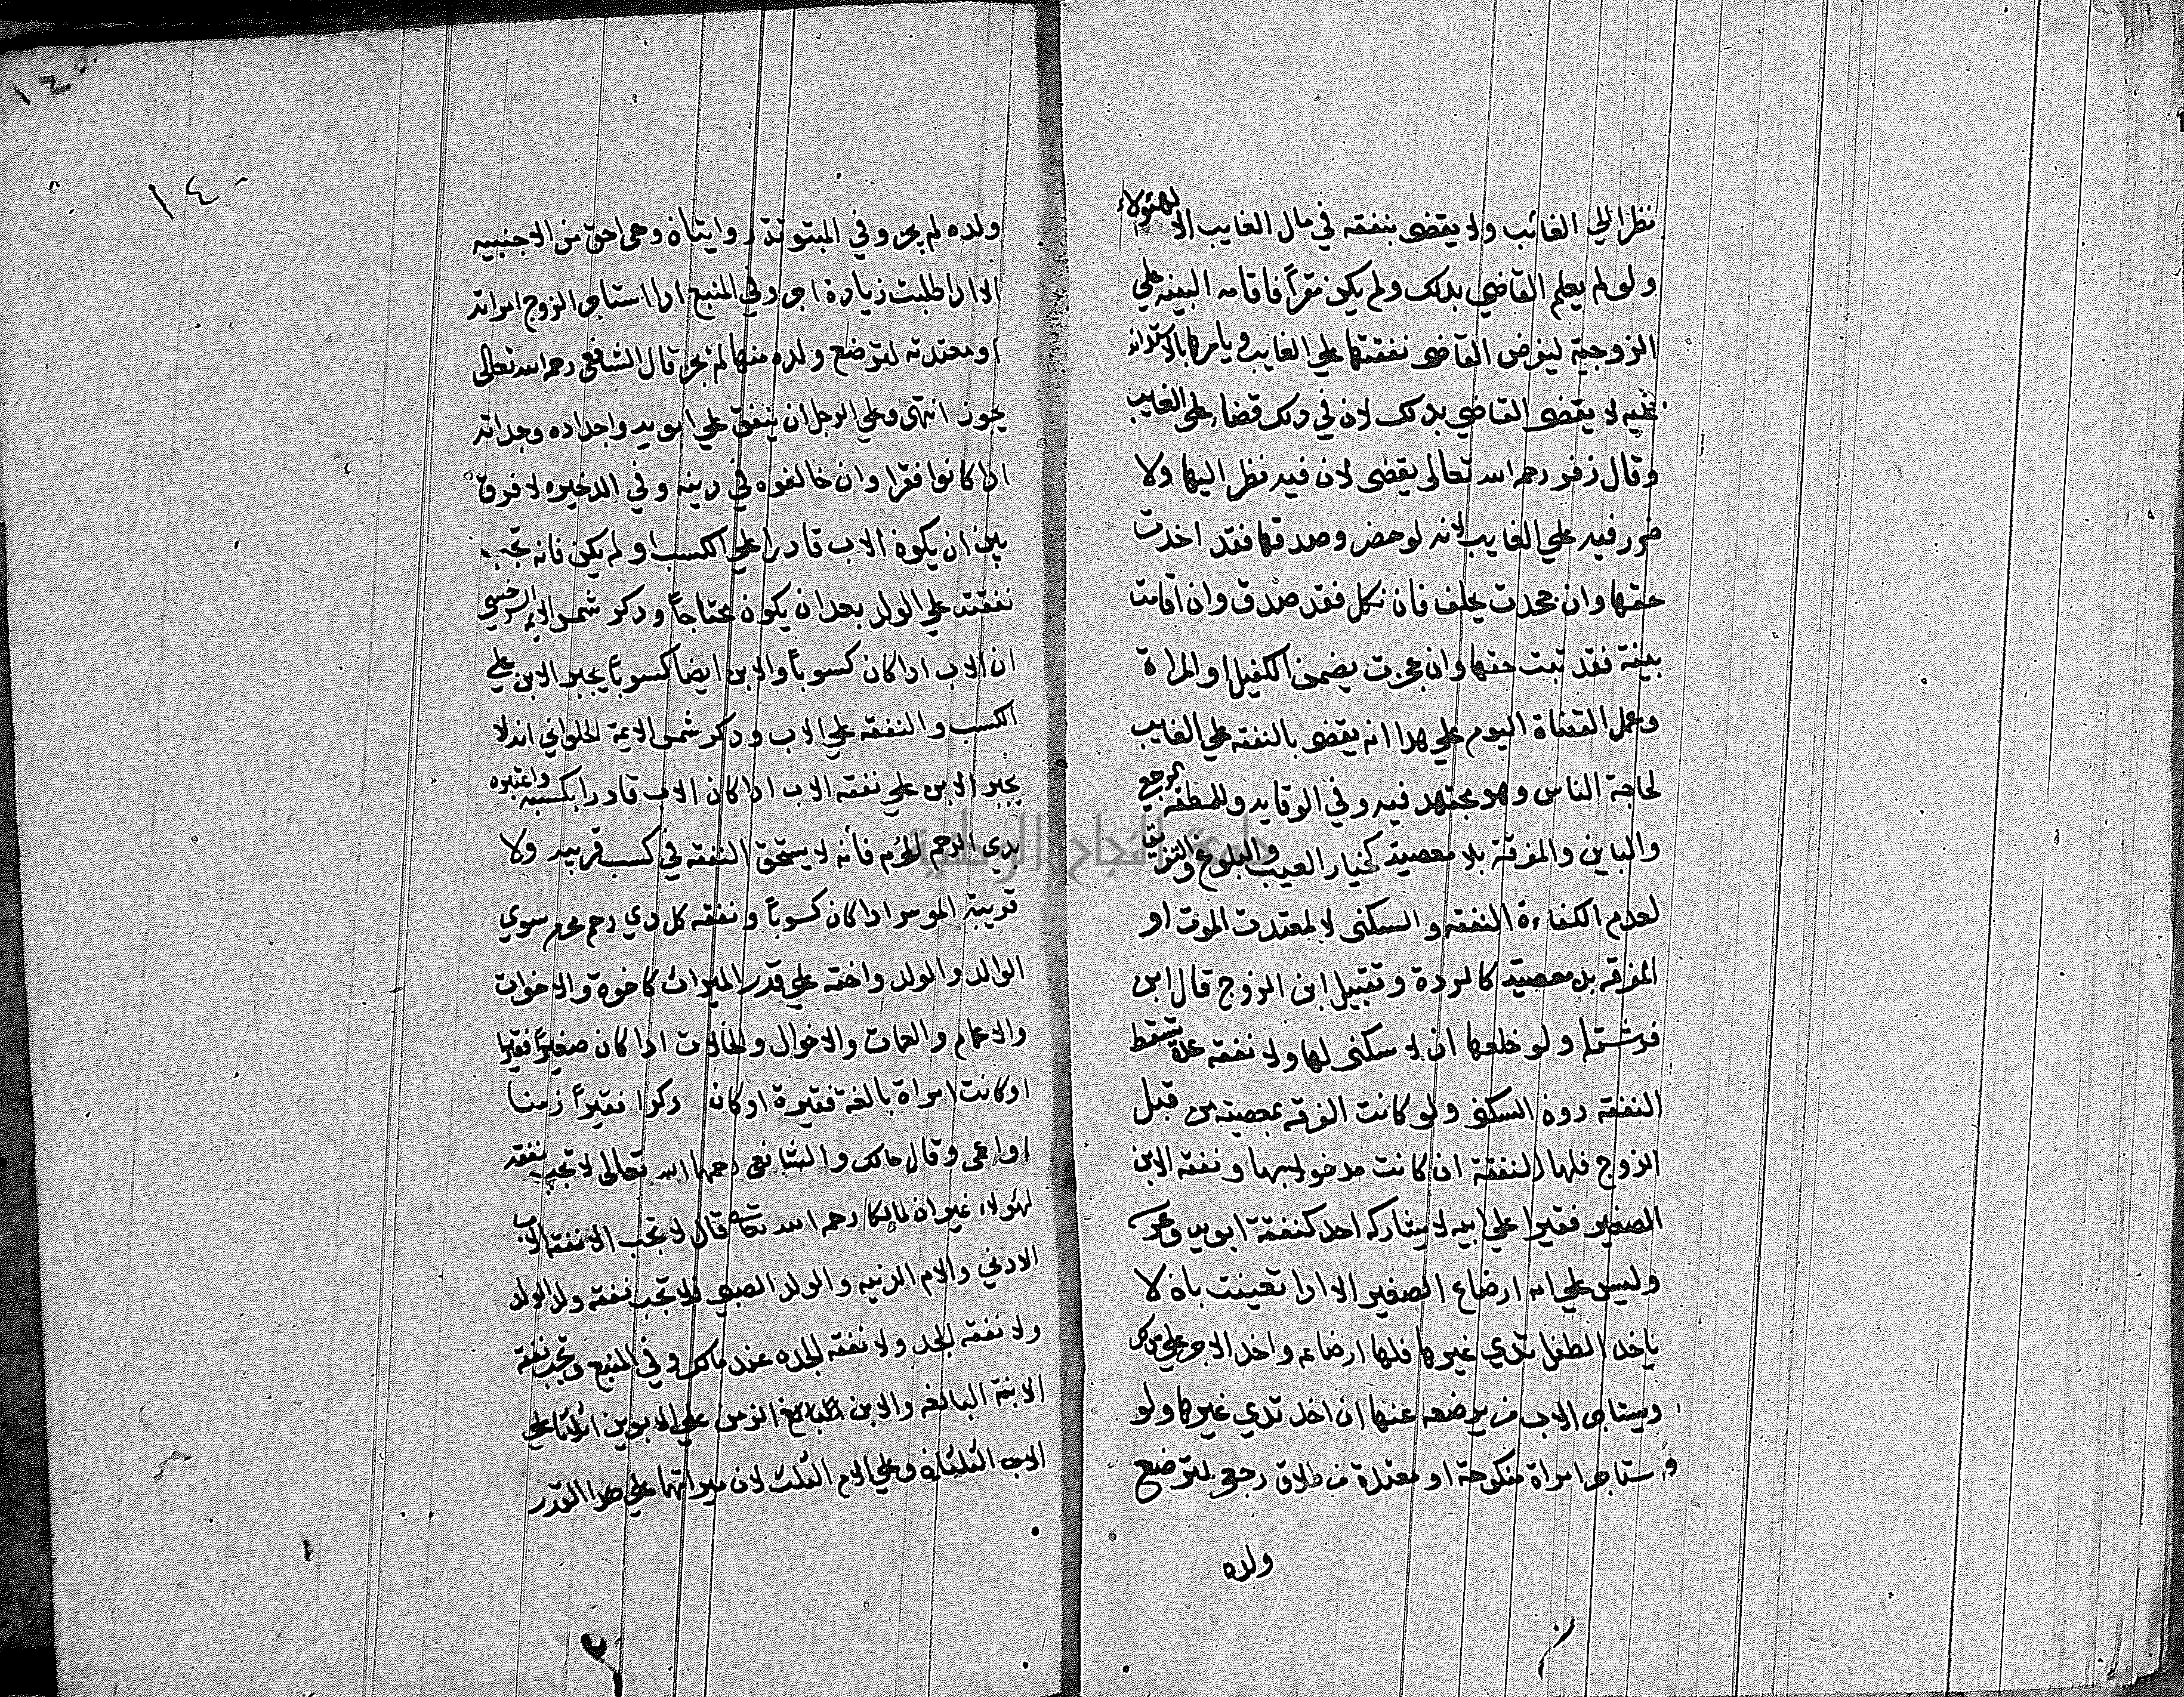 نظرا الي الغائب ولا يقضى بنفقه في مال الغايب الا لهئولاء
ولو لم يعلم القاضي بدلك ولم يكن مقراً فاقامه البينه علي
الزوجية ليفرض القاضى نفقتها علي الغايب ويامرها بالاستدانه
عليه لا يقضى القاضي بدلك لان في دلك قضا علي الغايب
وقال زفر رحمه الله تعالى يقضى لان فيه نظر اليها ولا
ضرر فيه علي الغايب لانه لو حضر وصدقها فقد اخدت
حقها وان جحدت يحلف فان نكل فقد صدق وان اقامت
بينة فقد تبت حقها وان عجزت يضمن الكفيل او المراة
وعمل القضاة اليوم علي هدا انه يقضى بالنفقه علي الغايب
لحاجة الناس وهو مجتهد فيه وفي الوقايه وللمطلقه الرجعي
والباين والمفرقة بلا معصية كخيار العيب والبلوغ والتفريق
لعدم الكفاءة النفقه والسكنى لا لمعتدت الموت او
المفرقه بمعصية كالردة وتقبيل ابن الزوج قال ابن
فرشتا ولو خلعها ان لا سكنى لها ولا نفقه عدة تسقط
النفقه دون السكنى ولو كانت الفرقه بمعصيه من قبل
الزوج فلها النفقة ان كانت مدخولا بها ونفقه الابن
الصغير فقيرا علي ابيه لا يشاركه احد كنفقة ابويه وعرسه
وليس علي امه ارضاع الصغير الا ادا تعينت بان لا
ياخد الطفل تدي غيرها فلها ارضاعه واخد الاجر علي
ويستاجر الاب من يرضعه عنها ان اخد تدي غيرها ولو
استاجر امراة منكوحة او معتدة من طلاق رجعي لترضع
ولده
١٤٠
١٤٠
ولده لم يجز وفي المبتوتة روايتان وهي احق من الاجنبيه
الا ادا طلبت زيادة اجر وفي المنبع ادا استاجر الزوج امراته
او معتدته لترضع ولده منها لم يجز قال الشافعى رحمه الله تعالى
يجوز انتهى وعلي الرجل ان ينفق علي ابويه واجداده وجداته
ادا كانوا فقرا وان خالفوه في دينه وفي الدخيره لا فرق
بين ان يكون الاب قادرا علي الكسب او لم يكن فانه تجب
نفقته علي الولد بعد ان يكون محتاجاً ودكر شمس الايمه السرخسي
ان الاب ادا كان كسوباً والابن ايضا كسوباً يجبر الابن علي
الكسب والنفقه علي الاب ودكر شمس الايمة الحلواني انه لا
يجبر الابن علي نفقه الاب ادا كان الاب قادرا بكسبه واعتبره
بدي الرحم المحرم فانه لا يستحق النفقه في كسب قريبه ولا
قريبة الموسر ادا كان كسوباً ونفقه كل دي رحم محرم سوي
الوالد والولد واخته علي قدر الميراث كاخوة والاخوات
والاعمام والعمات والاخوال والخالات ادا كان صغيراً فقيرا
او كانت امراة بالغة فقيرة او كان دكرا فقيراً زمنا
او اعمى وقال مالك والشافعى رحمهما الله تعالى لا تجب نفقه
لهئولاء غير ان مالكا رحمه الله تعا قال لا تجب الا نفقه الاب
الادني والام الدنيه والولد الصبي فلا تجب نفقه ولد الولد
ولا نفقه الجد ولا نفقه الجده عند مالك وفي المنبع وتجب نفقة
الابنة البالغه والابن البالغ الزمن علي الابوين اثلاثا علي
الاب الثلثان وعلي الام الثلث لان ميراثهما علي هدا القدر